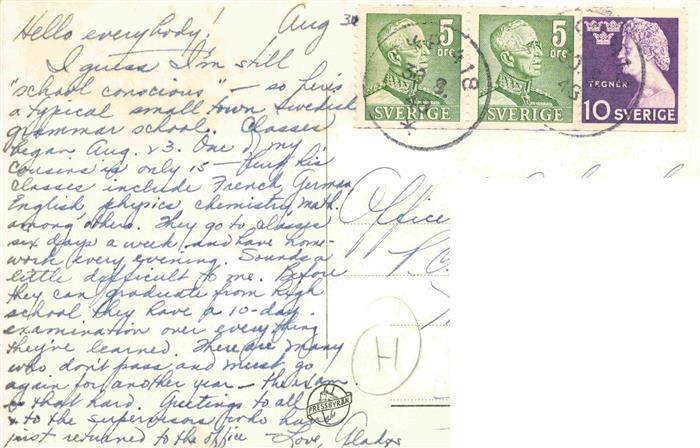 Hello everybody! Aug 30
I guess I'm still
"school conscious" — so here's
a typical small town Swedish
grammar school. Classes
began Aug. 23. One of my
cousins is only 15 — but his
classes include French, German
English physics chemistry math.
among others. They go to classes
six days a week and have home-
work every evening. Sounds a
little difficult to me. Before
they can graduate from high
school they have a 10-day
examination over everything
they've learned. There are many
who don't pass and must go
again for another year — the exam
that hard. Greetings to all
& to the supervisors who have
just returned to the office — Love, Gladys
5
ÖRE
SVERIGE
5
ÖRE
SVERIGE
TEGNÉR
10 SVERIGE
18
Office
H
PRESSBYRÅN